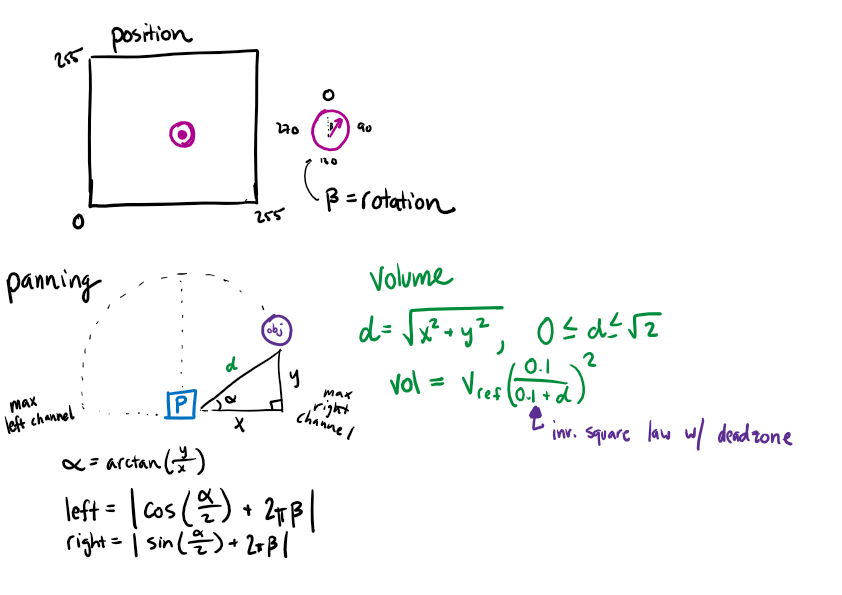 position
255
0
255
0
270
90
180
β = rotation
panning
obj
d
y
α
x
P
max
left channel
max
right
channel
α = arctan(y/x)
left = |cos(α/2) + 2πβ|
right = |sin(α/2) + 2πβ|
Volume
d = √(x² + y²), 0 ≤ d ≤ √2
vol = Vref(0.1/(0.1 + d))²
inv. square law w/ deadzone